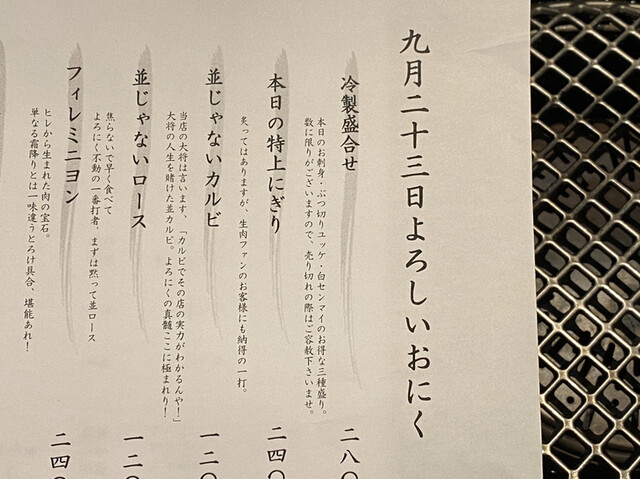 九月二十三日よろしいおにく
冷製盛合せ
本日のお刺身・ぶつ切りユッケ・白センマイのお得な三種盛り。
数に限りがございますので、売り切れの際はご容赦下さいませ。
二八〇
本日の特上にぎり
炙ってはありますが、生肉ファンのお客様にも納得の一打。
二四〇
並じゃないカルビ
当店の大将は言います、「カルビでその店の実力がわかるんや！」
大将の人生を賭けた並カルビ。よろにくの真髄ここに極まれり！
一二〇
並じゃないロース
焦らないで早く食べて
よろにく不動の一番打者、まずは黙って並ロース
一二〇
フィレミニヨン
ヒレから生まれた肉の宝石。
単なる霜降りとは一味違うとろけ具合、堪能あれ！
二四〇